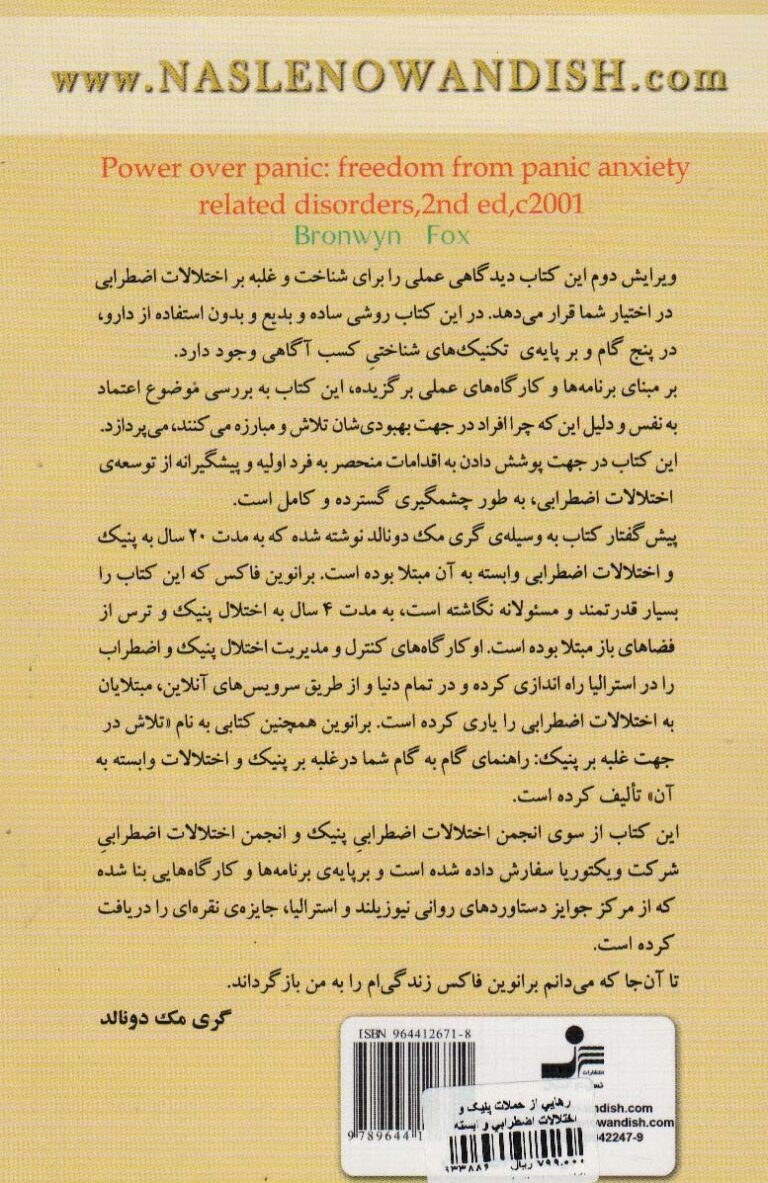 www.NASLENOWANDISH.com
Power over panic: freedom from panic anxiety
related disorders,2nd ed,c2001
Bronwyn Fox
ویرایش دوم این کتاب دیدگاهی عملی را برای شناخت و غلبه بر اختلالات اضطرابی
در اختیار شما قرار می‌دهد. در این کتاب روشی ساده و بدیع و بدون استفاده از دارو،
در پنج گام و بر پایه‌ی تکنیک‌های شناختیِ کسب آگاهی وجود دارد.
بر مبنای برنامه‌ها و کارگاه‌های عملی برگزیده، این کتاب به بررسی موضوع اعتماد
به نفس و دلیل این‌که چرا افراد در جهت بهبودی‌شان تلاش و مبارزه می‌کنند، می‌پردازد.
این کتاب در جهت پوشش دادن به اقدامات منحصر به فرد اولیه و پیشگیرانه از توسعه‌ی
اختلالات اضطرابی، به طور چشمگیری گسترده و کامل است.
پیش‌گفتار کتاب به وسیله‌ی گری مک دونالد نوشته شده که به مدت ۲۰ سال به پنیک
و اختلالات اضطرابی وابسته به آن مبتلا بوده است. برانوین فاکس که این کتاب را
بسیار قدرتمند و مسئولانه نگاشته است، به مدت ۴ سال به اختلال پنیک و ترس از
فضاهای باز مبتلا بوده است. او کارگاه‌های کنترل و مدیریت اختلال پنیک و اضطراب
را در استرالیا راه اندازی کرده و در تمام دنیا و از طریق سرویس‌های آنلاین، مبتلایان
به اختلالات اضطرابی را یاری کرده است. برانوین همچنین کتابی به نام «تلاش در
جهت غلبه بر پنیک: راهنمای گام به گام شما درغلبه بر پنیک و اختلالات وابسته به
آن» تألیف کرده است.
این کتاب از سوی انجمن اختلالات اضطرابیِ پنیک و انجمن اختلالات اضطرابیِ
شرکت ویکتوریا سفارش داده شده است و برپایه‌ی برنامه‌ها و کارگاه‌هایی بنا شده
که از مرکز جوایز دستاوردهای روانی نیوزیلند و استرالیا، جایزه‌ی نقره‌ای را دریافت
کرده است.
تا آن‌جا که می‌دانم برانوین فاکس زندگی‌ام را به من بازگرداند.
گری مک دونالد
ISBN 964412671-8
انتشارات
رهایي از حملات پنیک و
اختلالات اضطرابي و ابسته
ndish.com
owandish.com
042247-9
9 789644 1
۹۳۳۸۸۶
۷۹۹.۰۰۰ ریال